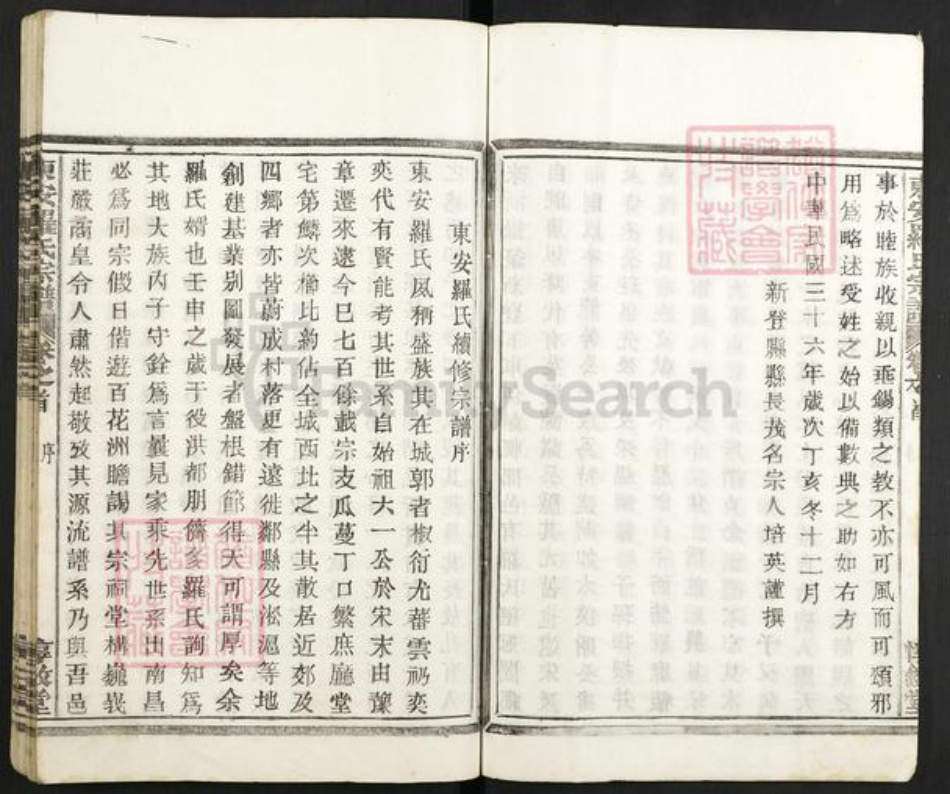 事於睦族收親以垂錫類之教不亦可風而可頌邪
用爲略述受姓之始以備數典之助如右方
中華民國三十六年歲次丁亥冬十二月
新登縣縣長茂名宗人培英謹撰
東安羅氏續修宗譜序
東安羅氏夙稱盛族其在城郭者椒衍尤蕃雲礽奕
奕代有賢能考其世系自始祖大一公於宋末由豫
章遷來逮今已七百餘載宗支瓜蔓丁口繁庶廳堂
宅第鱗次櫛比約佔全城西北之半其散居近郊及
四鄉者亦皆蔚成村落更有遠徙鄰縣及淞滬等地
創建基業别圖發展者盤根錯節得天可謂厚矣余
羅氏婿也壬申之歲于役洪都朋儕多羅氏詢知爲
其地大族丙子守銓爲言曩見家乘先世系出南昌
必爲同宗假日偕遊百花洲瞻謁其宗祠堂構巍峩
莊嚴矞皇令人肅然起敬攷其源流譜系乃與吾邑
東安羅氏宗譜 卷之首 序
FamilySearch